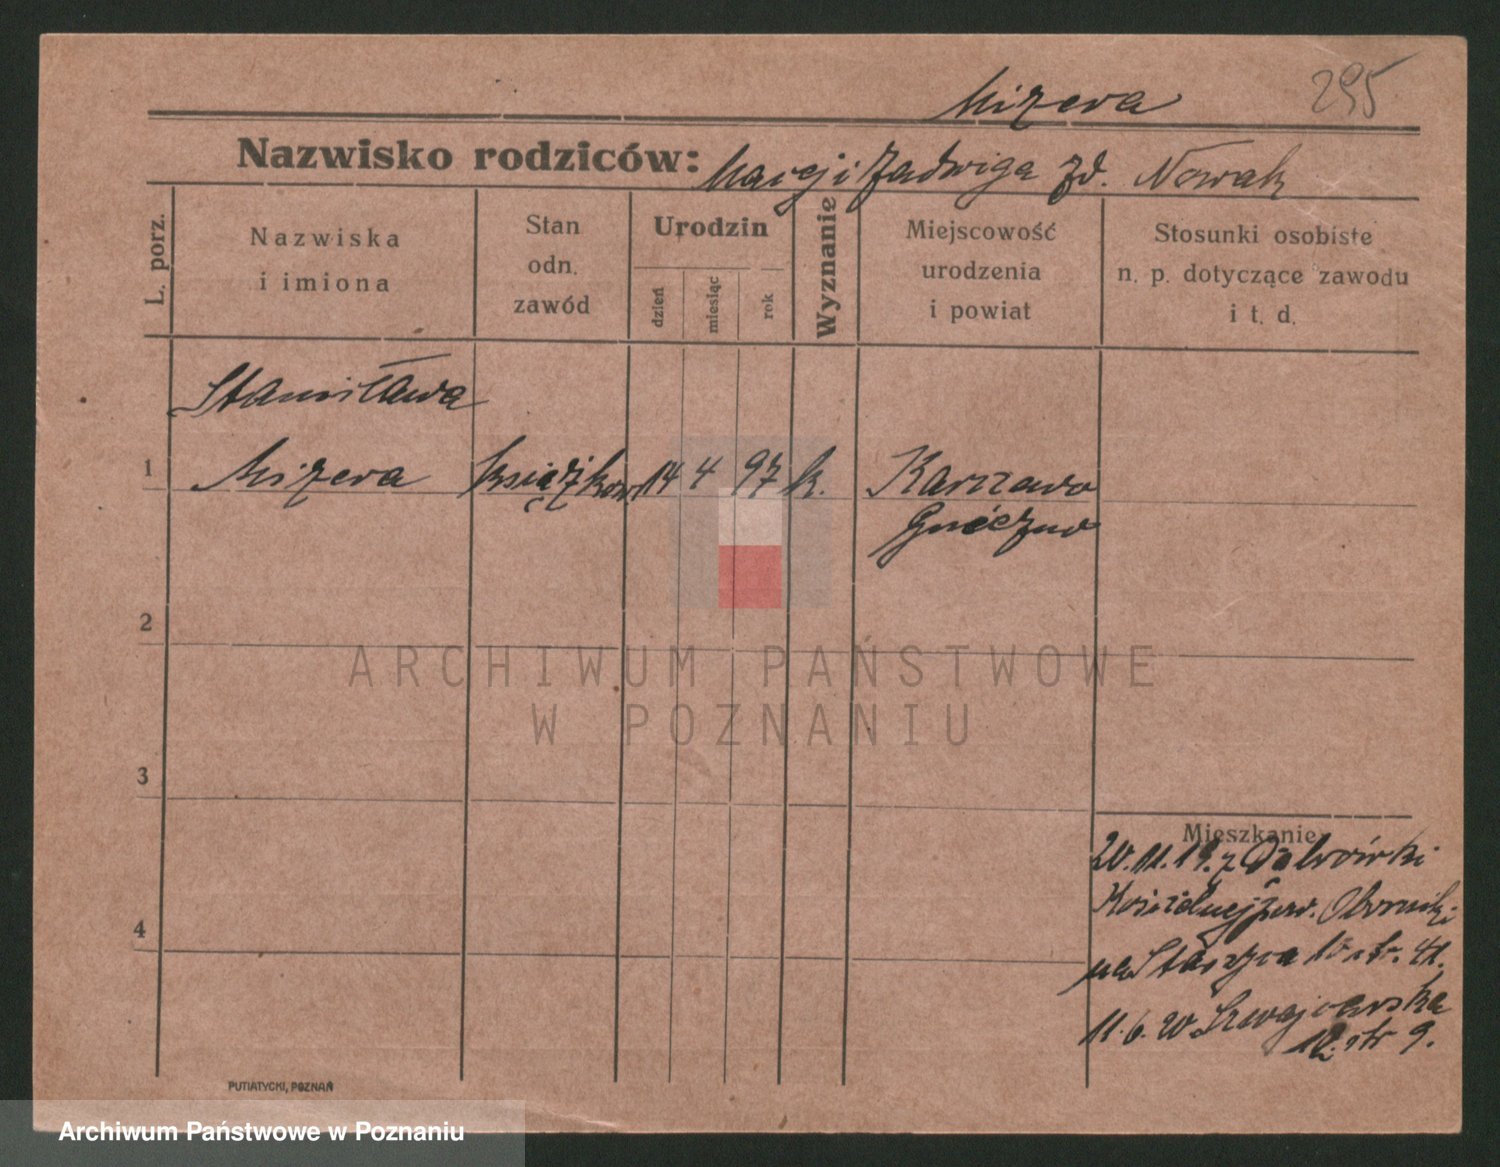 Mizera 295
Nazwisko rodziców: Maciej i Jadwiga zd. Nowak
L. porz.
Nazwiska
i imiona
Stan
odn.
zawód
Urodzin
dzień
miesiąc
rok
Wyznanie
Miejscowość
urodzenia
i powiat
Stosunki osobiste
n. p. dotyczące zawodu
i t. d.
Stanisława
1 Mizera książkow. 14 4 97 k. Karczewo
Gniezno
2
ARCHIWUM PAŃSTWOWE
W POZNANIU
3
Mieszkanie
20.11.19. z Dąbrówki
Kościelnej pow. Oborniki
4
na Staszyca 10 str. 41.
11.6.20 Szwajcarska
12. str 9.
PUTIATYCKI, POZNAŃ
Archiwum Państwowe w Poznaniu